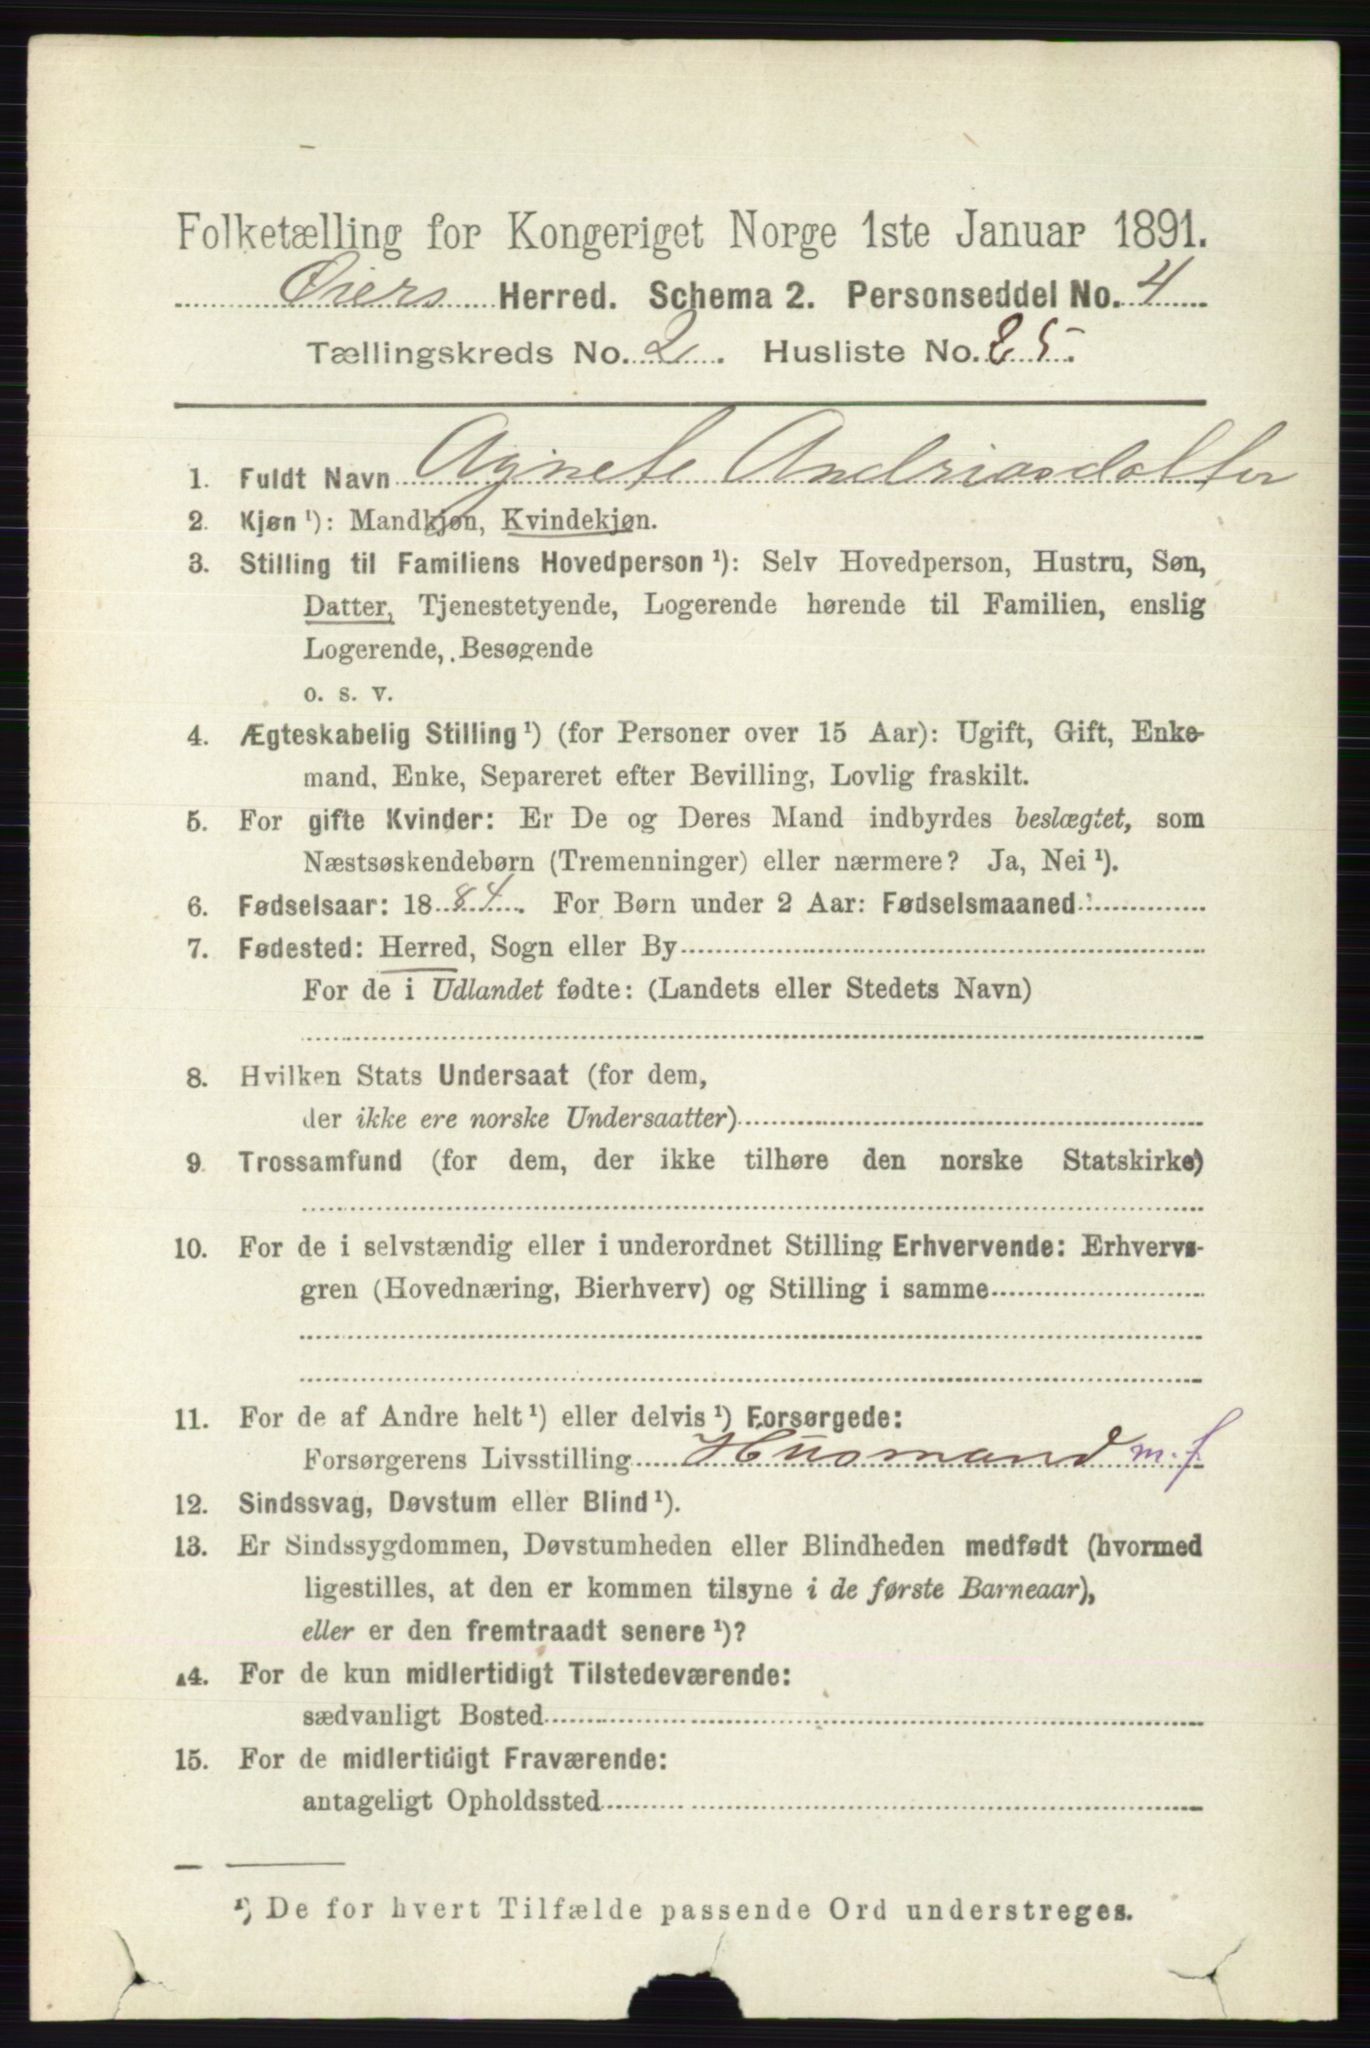 Folketælling for Kongeriget Norge 1ste Januar 1891.
Øiers Herred. Schema 2. Personseddel No. 4
Tællingskreds No. 2. Husliste No. 25.
1. Fuldt Navn Agnete Andriasdatter
2. Kjøn ¹): Mandkjøn, Kvindekjøn.
3. Stilling til Familiens Hovedperson ¹): Selv Hovedperson, Hustru, Søn,
Datter, Tjenestetyende, Logerende hørende til Familien, enslig
Logerende, Besøgende
o. s. v.
4. Ægteskabelig Stilling ¹) (for Personer over 15 Aar): Ugift, Gift, Enke-
mand, Enke, Separeret efter Bevilling, Lovlig fraskilt.
5. For gifte Kvinder: Er De og Deres Mand indbyrdes beslægtet, som
Næstsøskendebørn (Tremenninger) eller nærmere? Ja, Nei ¹).
6. Fødselsaar: 1884. For Børn under 2 Aar: Fødselsmaaned:
7. Fødested: Herred, Sogn eller By
For de i Udlandet fødte: (Landets eller Stedets Navn)
8. Hvilken Stats Undersaat (for dem,
der ikke ere norske Undersaatter)
9. Trossamfund (for dem, der ikke tilhøre den norske Statskirke)
10. For de i selvstændig eller i underordnet Stilling Erhvervende: Erhvervs-
gren (Hovednæring, Bierhverv) og Stilling i samme
11. For de af Andre helt ¹) eller delvis ¹) Forsørgede:
Forsørgerens Livsstilling Husmand m. j.
12. Sindssvag, Døvstum eller Blind ¹).
13. Er Sindssygdommen, Døvstumheden eller Blindheden medfødt (hvormed
ligestilles, at den er kommen tilsyne i de første Barneaar),
eller er den fremtraadt senere ¹)?
14. For de kun midlertidigt Tilstedeværende:
sædvanligt Bosted
15. For de midlertidigt Fraværende:
antageligt Opholdssted
¹) De for hvert Tilfælde passende Ord understreges.